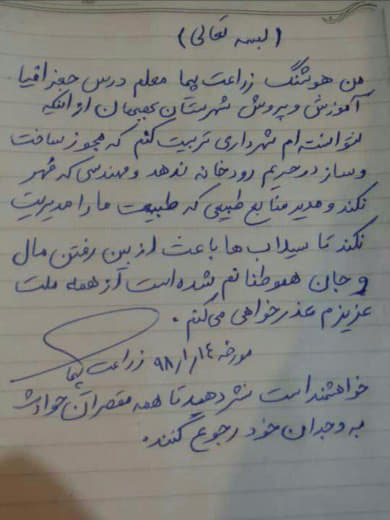 (بسمه تعالی)
من هوشنگ زراعت پیما معلم درس جغرافیا
آموزش و پرورش شهرستان ممسنی از اینکه
نتوانسته ام شهرداری تربیت کنم که مجوز ساخت
و ساز در حریم رودخانه ندهد و مهندسی که مُهر
نکند و مدیر منابع طبیعی که طبیعت ما را مدیریت
نکند تا سیلاب ها باعث از بین رفتن مال
و جان هموطنانم شده است از همه ملت
عزیزم عذرخواهی می‌کنم .
مورخه ۹۸/۱/۱۴ زراعت پیما
خواهشمند است نشر دهید تا همه مقصران حوادث
به وجدان خود رجوع کنند.